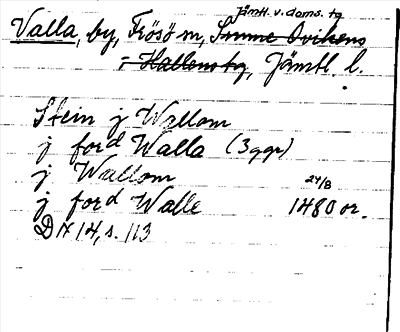 Jämtl. v. doms. tg
Valla, by, Frösö m, Sunne Ovikens
o. Hallens tg, Jämtl. l.
Stein j Wallom
j ford Walla (3 ggr)
j Wallom
j ford Walle 24/8 1480 or.
DN 14, s. 113